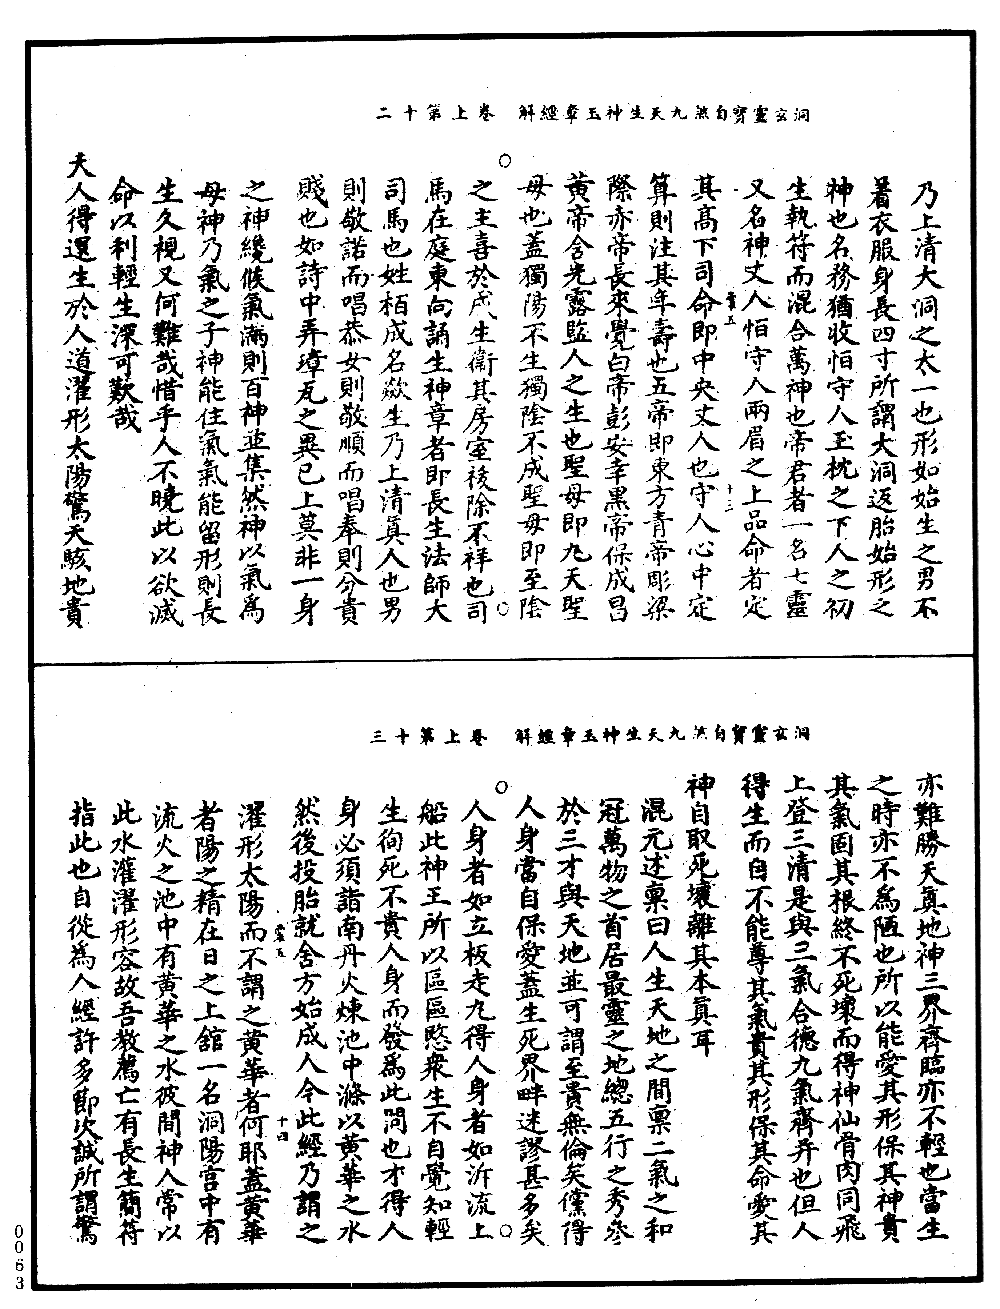 洞玄靈寶自然九天生神玉章經解　卷上第十二
乃上清大洞之太一也形如始生之男不
著衣服身長四寸所謂大洞返胎始形之
神也名務猶收恒守人玉枕之下人之初
生執符而混合萬神也帝君者一名七靈
又名神丈人恒守人兩眉之上品命者定
其高下司命即中央丈人也守人心中定
算則注其年壽也五帝即東方青帝彫梁
際赤帝長來覺白帝彭安幸黑帝保成昌
黃帝含光露監人之生也聖母即九天聖
母也蓋獨陽不生獨陰不成聖母即至陰
之主喜於成生衛其房室後除不祥也司
馬在庭東向誦生神章者即長生法師大
司馬也姓栢成名歘生乃上清真人也男
則敬諾而唱恭女則敬順而唱奉則分貴
賤也如詩中弄璋瓦之異已上莫非一身
之神纔候氣滿則百神並集然神以氣為
母神乃氣之子神能住氣氣能留形則長
生久視又何難哉惜乎人不曉此以欲滅
命以利輕生深可歎哉
夫人得還生於人道濯形太陽驚天駭地貴
洞玄靈寶自然九天生神玉章經解　卷上第十三
亦難勝天真地神三界齊臨亦不輕也當生
之時亦不為陋也所以能愛其形保其神貴
其氣固其根終不死壞而得神仙骨肉同飛
上登三清是與三氣合德九氣齊并也但人
得生而自不能尊其氣貴其形保其命愛其
神自取死壞離其本真耳
混元述稟曰人生天地之間稟二氣之和
冠萬物之首居最靈之地總五行之秀參
於三才與天地並可謂至貴無倫矣儻得
人身當自保愛蓋生死界畔迷謬甚多矣
人身者如立板走丸得人身者如泝流上
船此神王所以區區愍眾生不自覺知輕
生徇死不貴人身而發為此問也才得人
身必須詣南丹火煉池中滌以黃華之水
然後投胎就舍方始成人今此經乃謂之
濯形太陽而不謂之黃華者何耶蓋黃華
者陽之精在日之上舘一名洞陽宮中有
流火之池中有黃華之水彼間神人常以
此水灌濯形容故吾教薦亡有長生簡符
指此也自從為人經許多節次誠所謂驚
0063